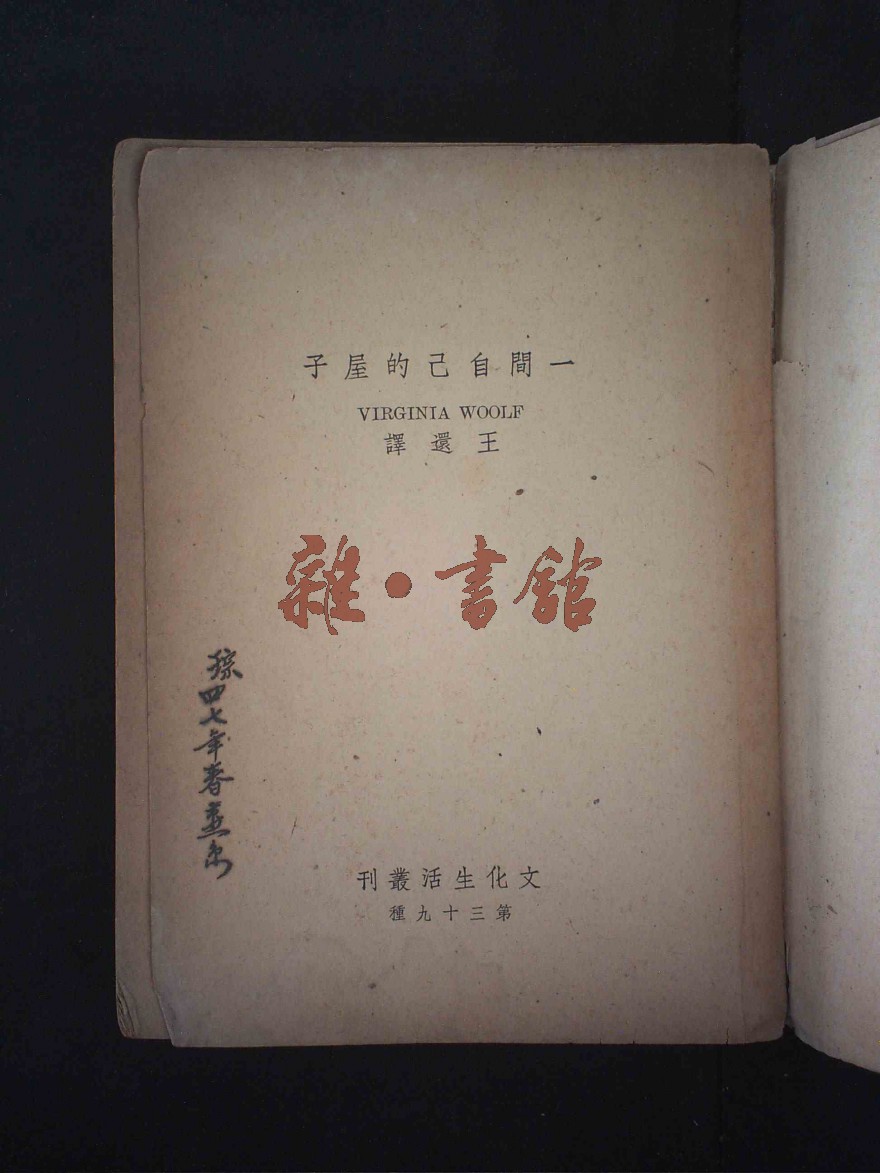 一間自己的屋子
VIRGINIA WOOLF
王還譯
雜·書館
四七年春燕京
文化生活叢刊
第三十九種